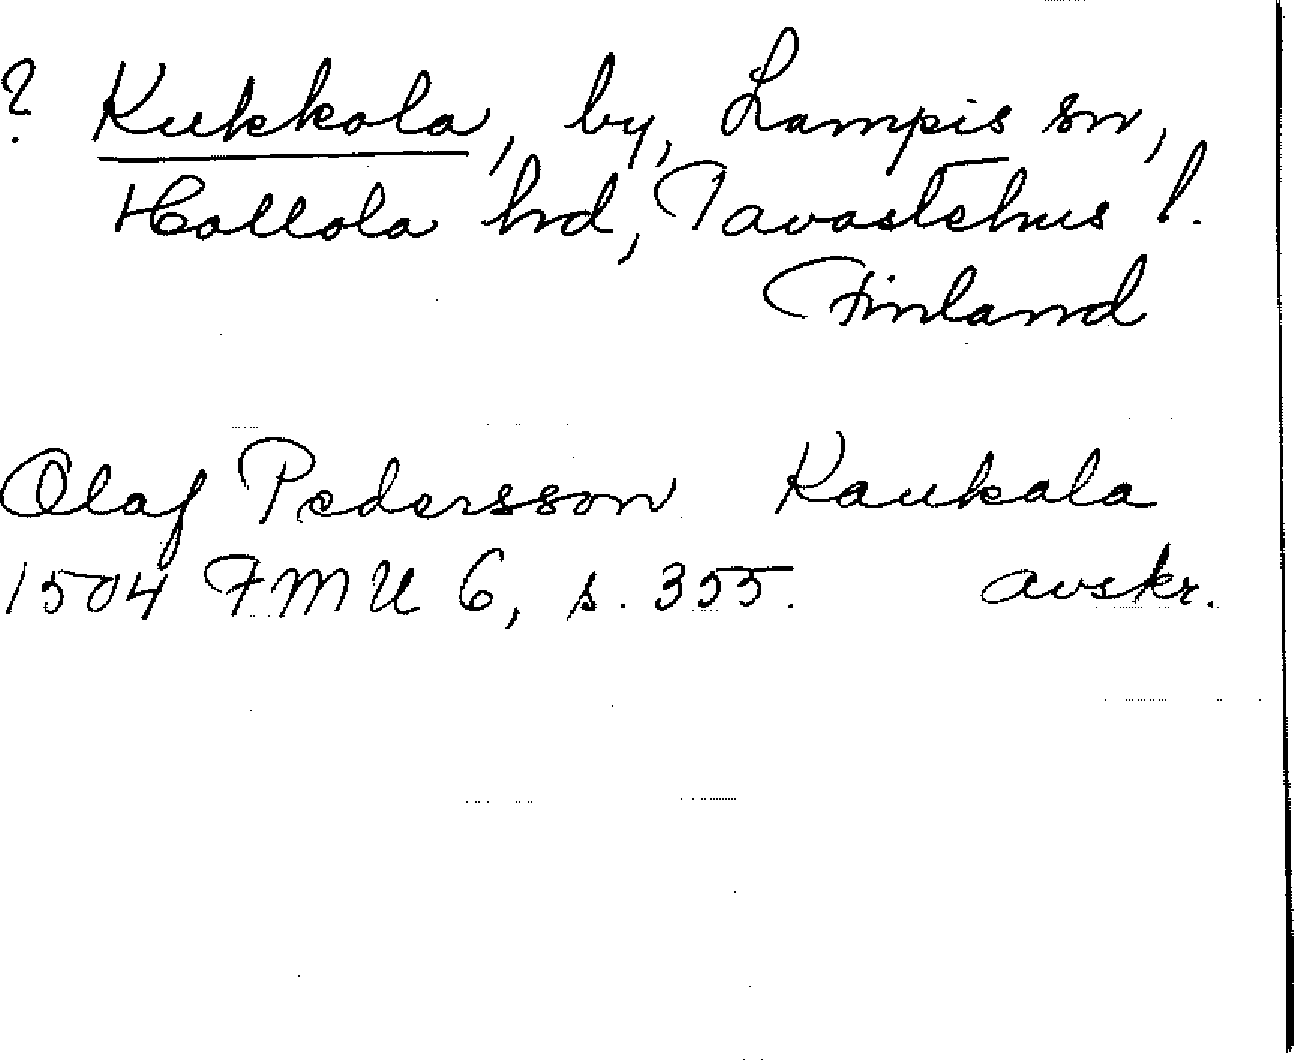 ? Kukkola, by, Lampis sn,
Hollola hrd, Tavastehus l.
Finland
Olaf Pedersson Kaukala
1504 FMU 6, s. 355. avskr.